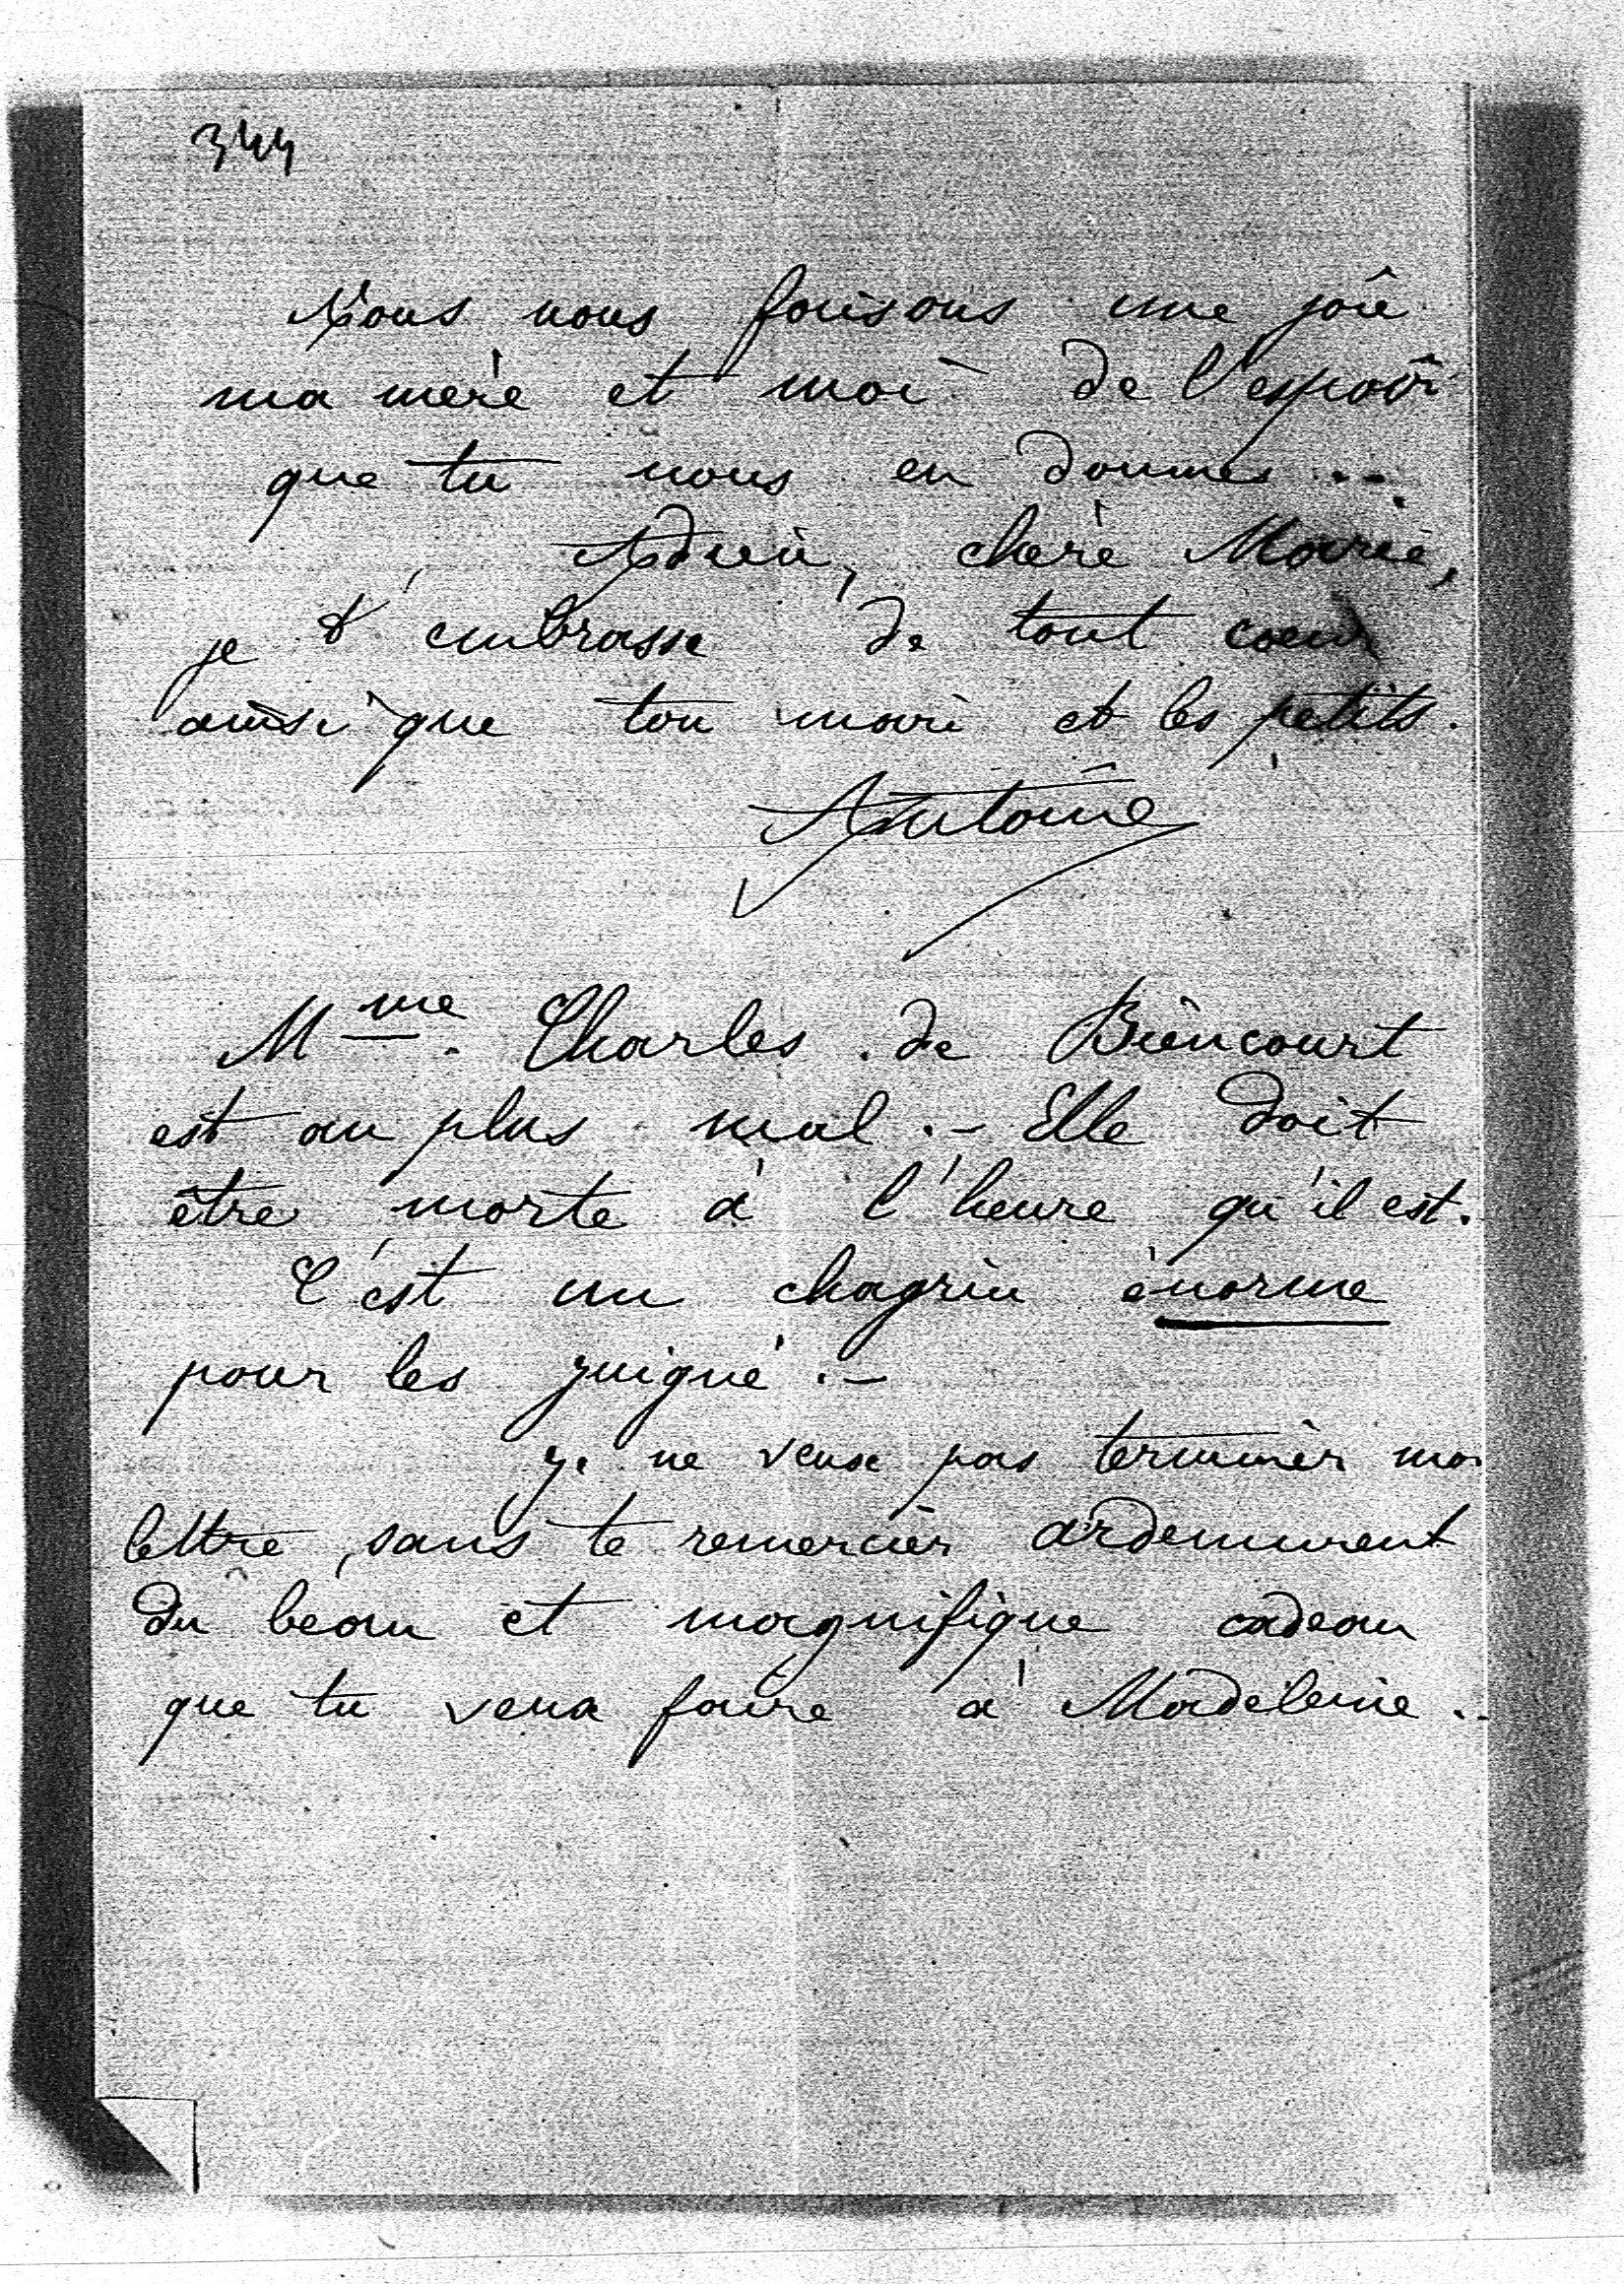 344
Nous nous faisons une joie
ma mère et moi de l'espoir
que tu nous en donnes ...
Adieu, chère Marie,
je t'embrasse de tout coeur
ainsi que ton mari et les petits.
Antoine
Mme. Charles de Biencourt
est au plus mal .- Elle doit
être morte à l'heure qu'il est.
C'est un chagrin énorme
pour les Juigné .-
Je ne veux pas terminer ma
lettre, sans te remercier ardemment
du beau et magnifique cadeau
que tu veux faire à Madeleine ..